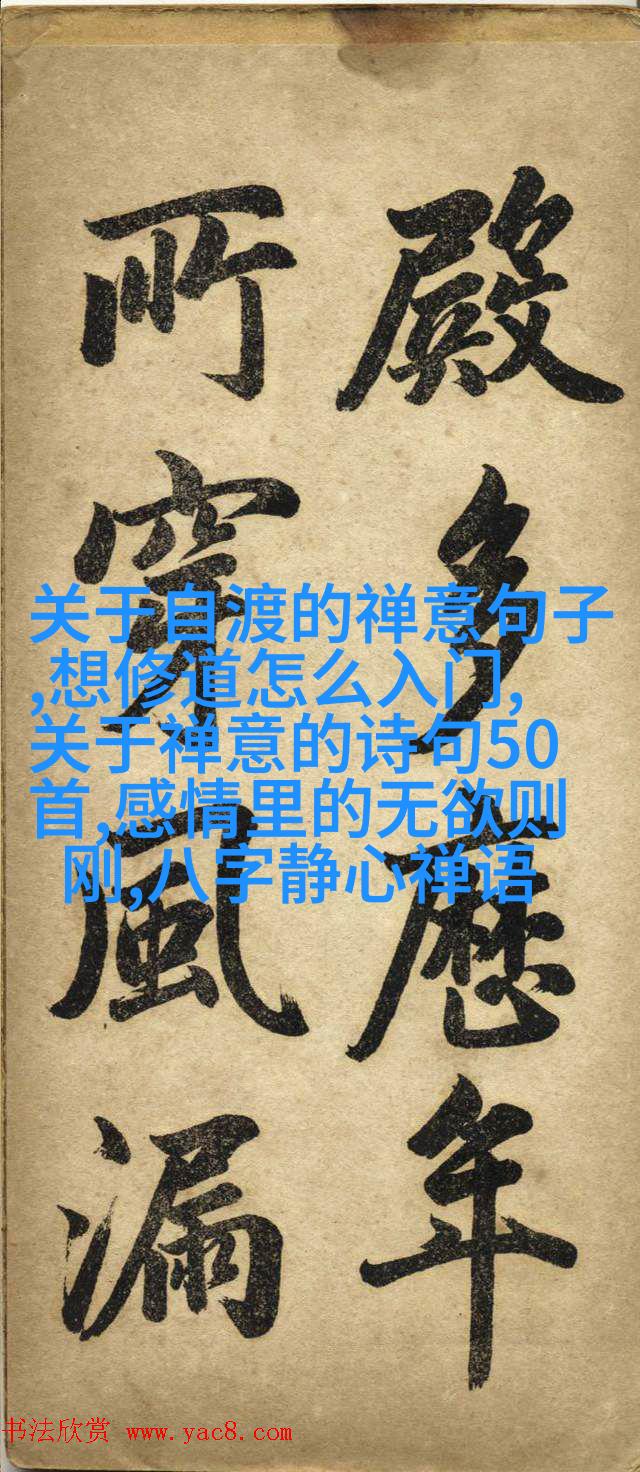 殿多歷年
所穿風漏
关于自渡的禅意句子
,想修道怎么入门,
关于禅意的诗句50
首,感情里的无欲则
刚,八字静心禅语
书法欣赏 www.yac8.com